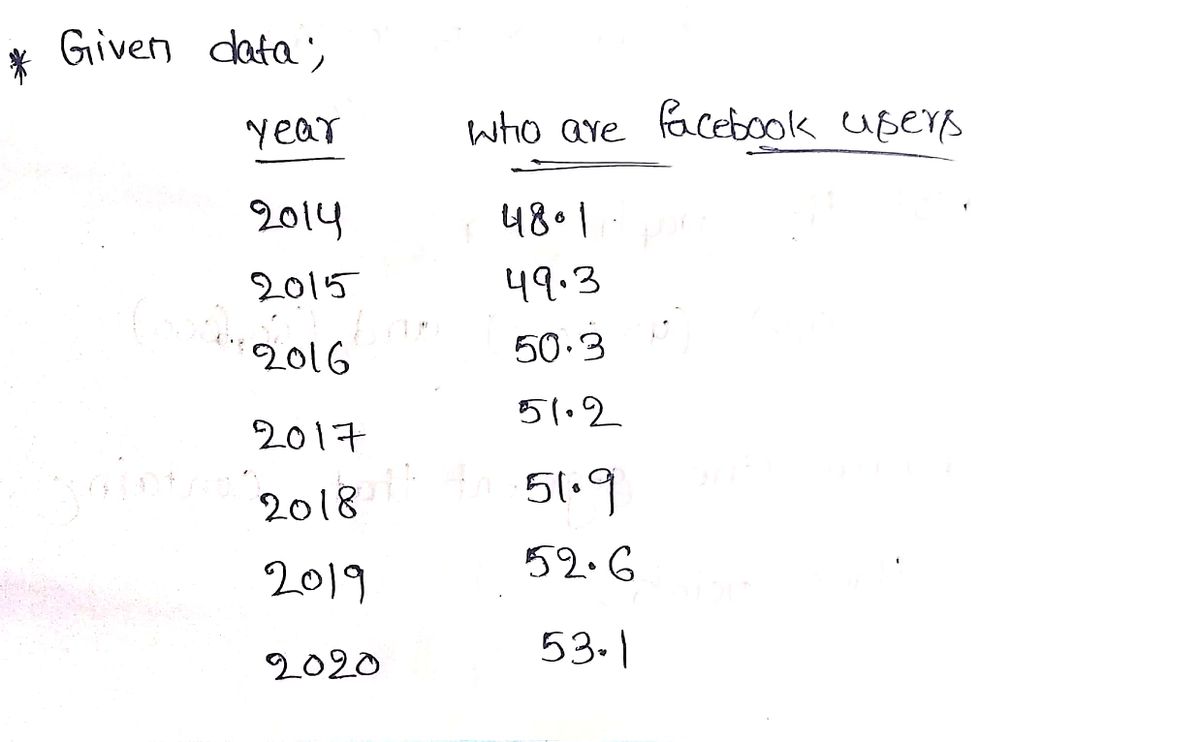 * Given data;
year who are facebook users
2014 48.1
2015 49.3
2016 50.3
2017 51.2
2018 51.9
2019 52.6
2020 53.1